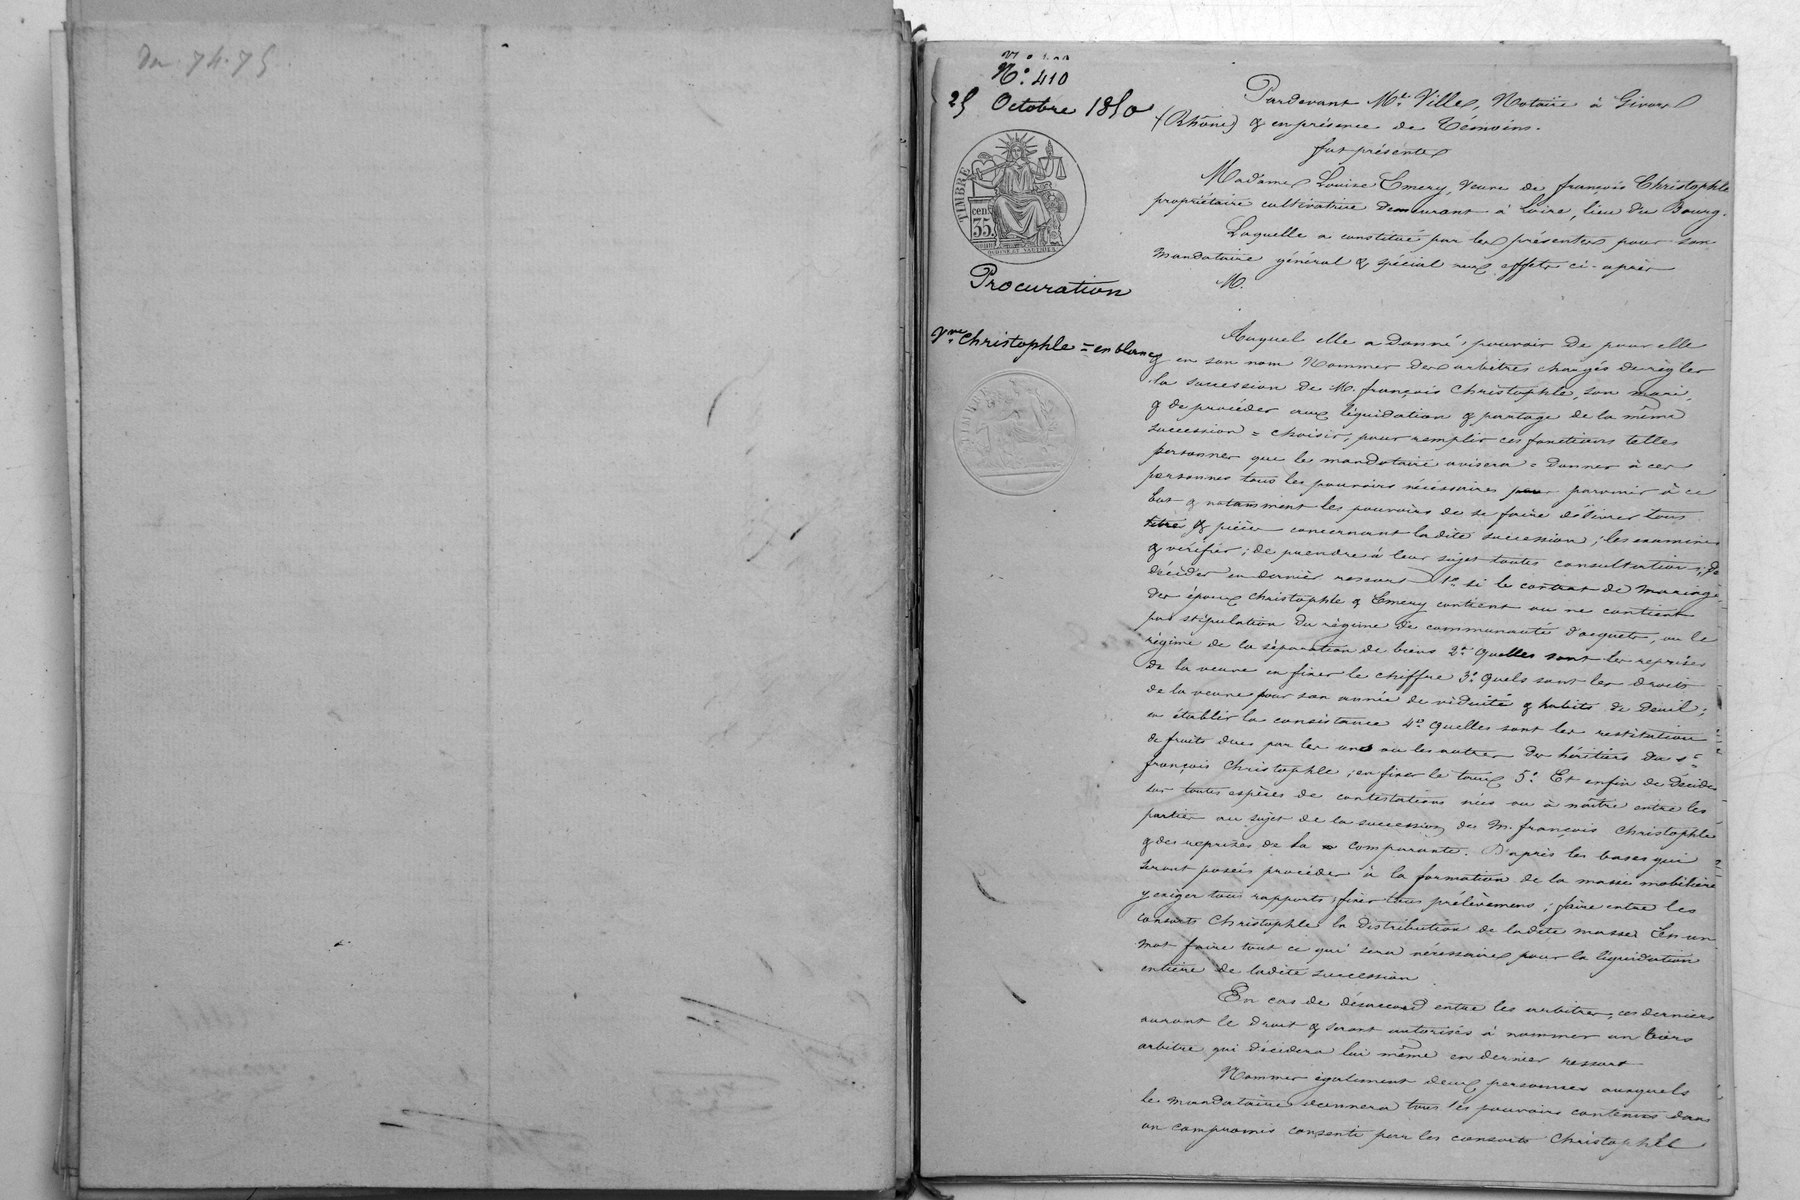 N° 410
25 Octobre 1850
TIMBRE
cent.
35.
Procuration
Vve Christophle = en blanc
Pardevant Me Ville, Notaire à Givors
(Rhône) & en présence de Témoins.
fut présente
Madame Louise Emery, Veuve de françois Christophle
propriétaire cultivatrice demeurant à Loire, lieu du Bourg.
Laquelle a constitué par les présentes pour son
mandataire général & spécial aux effets ci-après
M.
Auquel elle a donné pouvoir de pour elle
& en son nom Nommer des arbitres chargés de régler
la succession de M. françois Christophle, son mari,
& de procéder aux liquidation & partage de la même
succession = choisir, pour remplir ces fonctions telles
personnes que le mandataire avisera = donner à ces
personnes tous les pouvoirs nécessaires pour parvenir à ce
but & notamment les pouvoirs de se faire délivrer tous
titres & pièces concernant ladite succession ; les examiner
& vérifier ; de prendre à leur sujet toutes consultations ; de
décider en dernier ressort 1° si le contrat de mariage
des époux Christophle & Emery contient ou ne contient
pas stipulation du régime de communauté d'acquets, ou le
régime de la séparation de biens 2° Quelles sont les reprises
de la veuve en fixer le chiffre 3° Quels sont les droits
de la veuve pour son année de viduité & habits de deuil ;
en établir la consistance 4° Quelles sont les restitutions
de fruits dues par les uns ou les autres des héritiers du sr
françois Christophle ; en fixer le taux 5° Et enfin de décider
sur toutes espèces de contestations nées ou à naître entre les
parties au sujet de la succession de M. françois Christophle
& des reprises de la comparante. D'après les bases qui
seront posées procéder à la formation de la masse mobilière
y exiger tous rapports, fixer tous prélèvemens ; faire entre les
consorts Christophle la distribution de ladite masse. En un
mot faire tout ce qui sera nécessaire pour la liquidation
entière de ladite succession
En cas de désaccord entre les arbitres, ces derniers
auront le droit & seront autorisés à nommer un tiers
arbitre qui décidera lui même en dernier ressort
Nommer également deux personnes auxquels
le mandataire donnera tous les pouvoirs contenus dans
un compromis consenti par les consorts Christophle